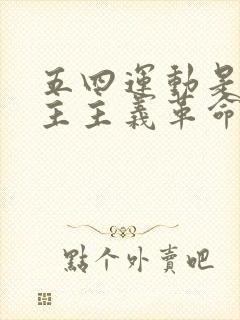 五四運動是
主主義革命
點个外賣吧